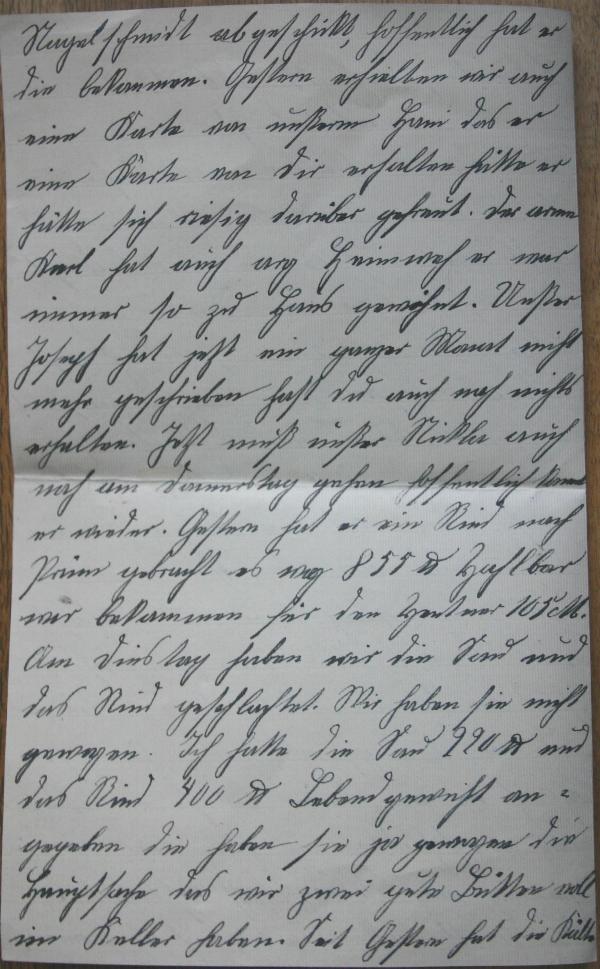 Nagelschmidt abgeschickt, hoffentlich hat er
die bekommen. Gestern erhielten wir auch
eine Karte von unserm Hani das er
eine Karte von Dir erhalten hätte er
hätte sich riesig darüber gefreut. Der arme
Karl hat auch arg Heimweh er war
immer so zu Haus gewöhnt. Unser
Joseph hat jetzt ein ganzer Monat nicht
mehr geschrieben hast du auch noch nichts
erhalten. Jetzt muß unser Nickla auch
noch am Donnerstag gehen hoffentlich kommt
er wieder. Gestern hat er ein Rind nach
Prüm gebracht es wog 855 ℔ Zahlbar
war bekommen für den Zentner 105 M.
Am Dienstag haben wir die Sau und
das Rind geschlachtet. Wir haben sie nicht
gewogen. Ich hatte die Sau 220 ℔ und
das Rind 400 ℔ Lebendgewicht an-
gegeben die haben sie ja gewogen die
Hauptsache das wir zwei gute Bütten voll
im Keller haben. Seit Gestern hat die Kälte